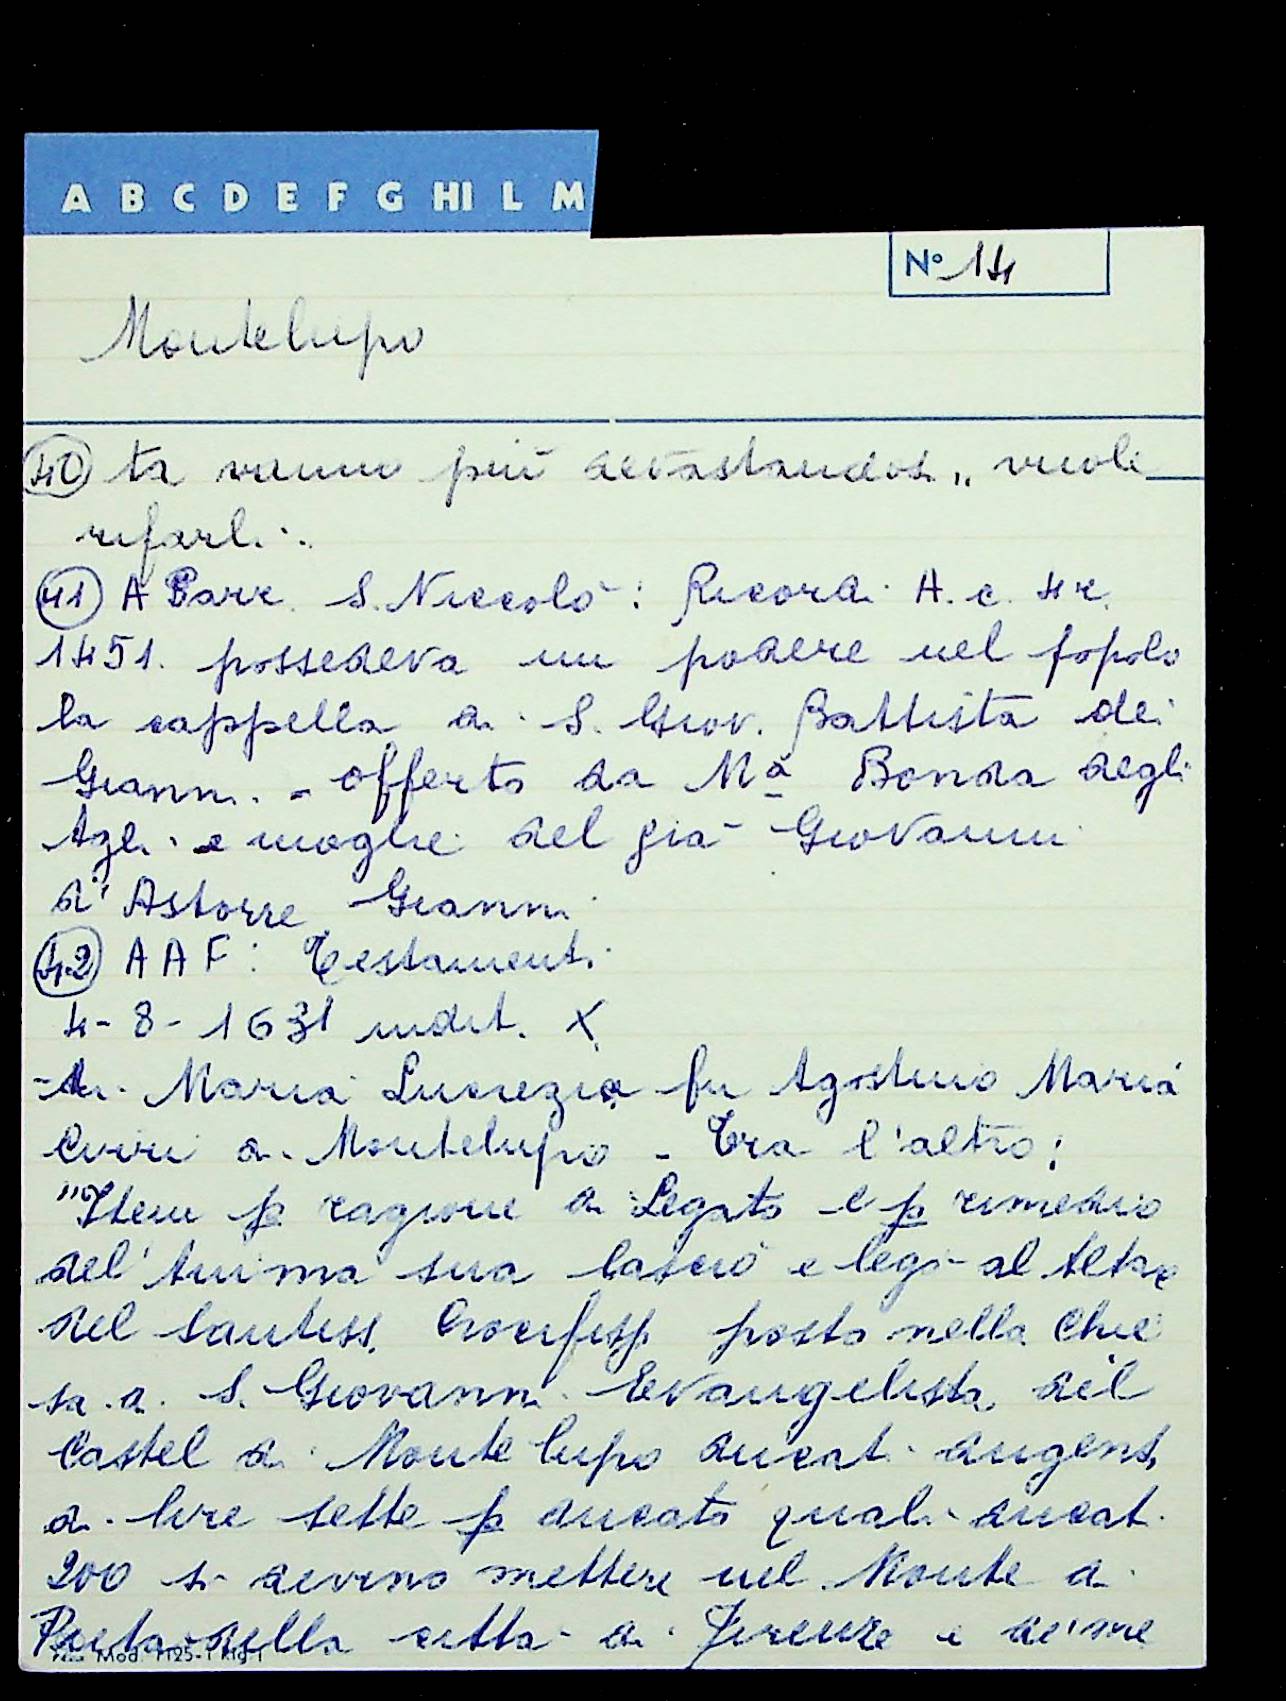 A B C D E F G HI L M
N° 14
Montelupo
40 ta vanno più devastandosi,, vuole
rifarli..
41 A Parr. S. Niccolò: Ricordi A. c. 4r.
1451. possedeva un podere nel popolo
la cappella di S. Giov. Battista dei
Gianni. - offerto da Mª Bonda degli
Agli e moglie del già Giovanni
d'Astorre Gianni
42 AAF: Testamenti
4-8-1631 indit. X
- di Maria Lucrezia fu Agostino Maria
di Montelupo - Tra l'altro:
"Item p ragione di Legato e p rimedio
del'Anima sua lasciò e legò al Altare
del Santiss. Crocifisso posto nella Chie
sa di S. Giovanni Evangelista del
Castel di Monte lupo ducati dugento
di lire sette p ducato quali ducati
200 si devino mettere nel Monte di
Pietà della città di Firenze e de' me
Mod. 1125-1